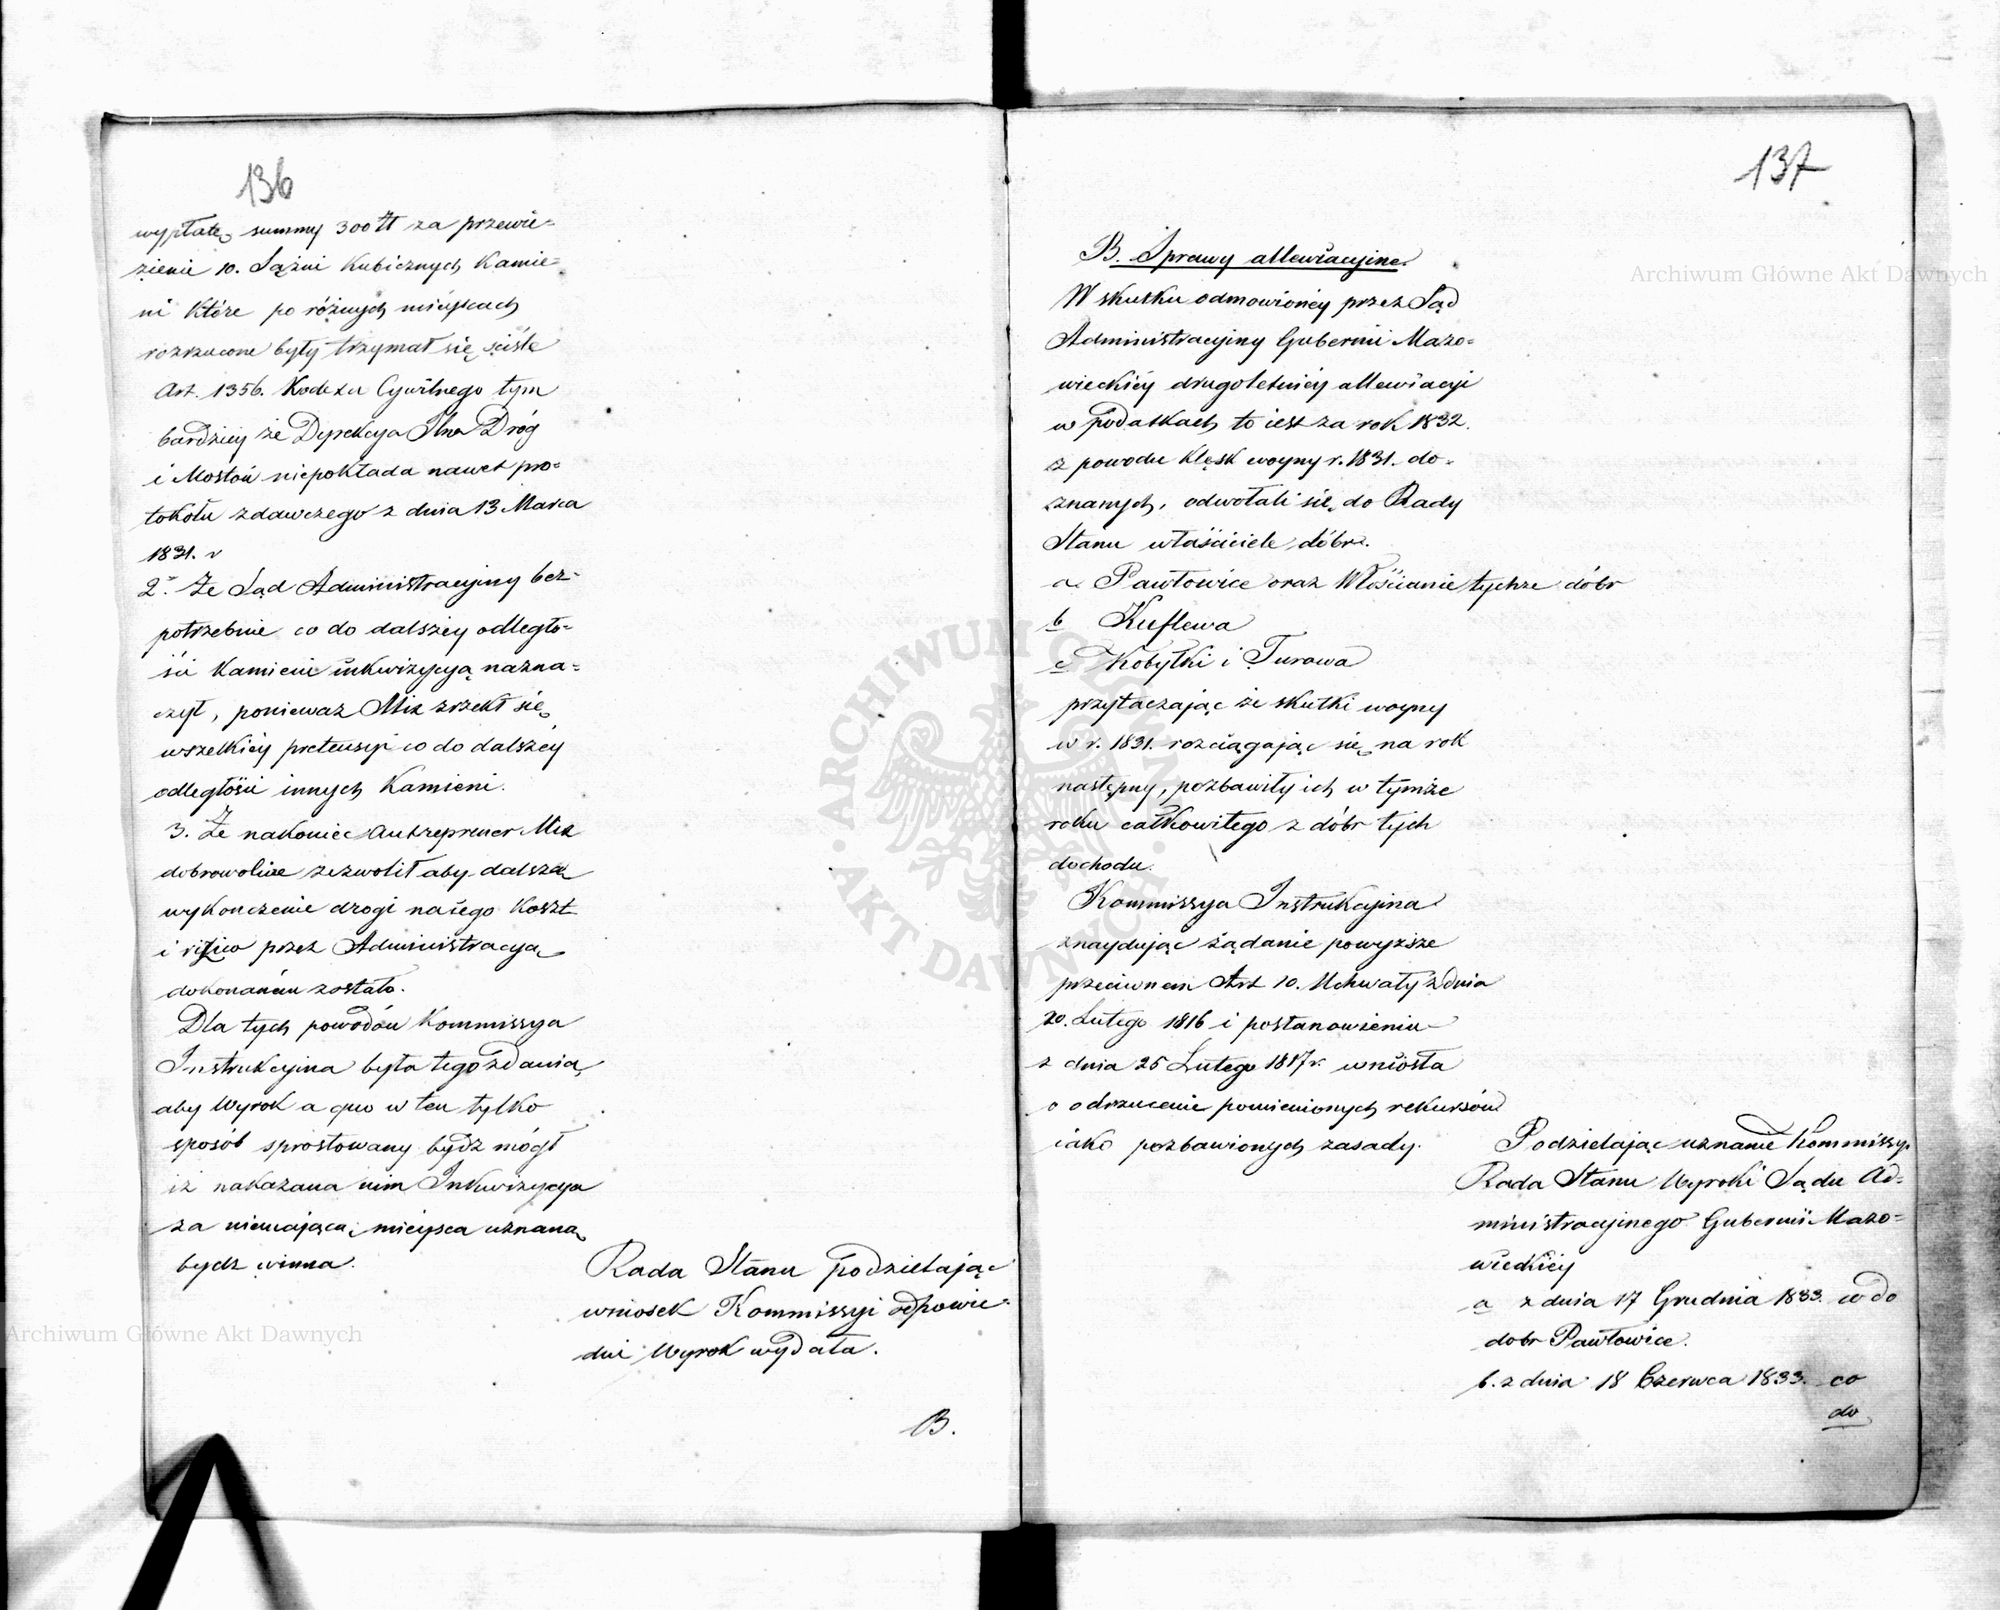 136
wypłatę summy 300 Zł za przewie-
zienie 10. Sążni Kubicznych Kamie-
ni Które po różnych miéyscach
rozrzucone były trzymał się ściśle
Art. 1356. Kodexu Cywilnego tym
bardziey że Dyrekcya Jlna Dróg
i Mostów niepokłada nawet pro-
tokołu zdawczego z dnia 13 Marca
1831. r
2. Że Sąd Administracyiny bez-
potrzebnie co do dalszey odległo-
ści Kamieni inkwizycyą nazna-
czył, ponieważ Mix zrzekł się
wszelkiéy pretensyi co do dalszéy
odległości innych Kamieni.
3. Że nakoniec Antreprener Mix
dobrowolnie zezwolił aby dalsze
wykonczenie drogi na iego Koszt
i risico przez Administracyą
dokonanem zostało.
Dla tych powodów Kommissya
Instrukcyina była tego zdania,
aby Wyrok a quo w ten tylko
sposób sprostowany bydz mógł
iż nakazana nim Inkwizycya
za niemaiącą mieysca uznaną
bydz winna.
Rada Stanu podzielaiąc
wniosek Kommissyi odpowie-
dni Wyrok wydała.
B.
137
B. Sprawy allewiacyine.
W skutku odmowionéy przez Sąd
Administracyiny Gubernii Mazo-
wieckiéy drugoletniéy allewiacyi
w podatkach to iest za rok 1832.
z powodu Klęsk woyny r. 1831. do-
znanych, odwołali się do Rady
Stanu właściciele dóbr.
a. Pawłowice oraz Włościanie tychże dóbr
b Kuflewa
c Kobyłki i Turowa
przytaczając że skutki woyny
w r. 1831. rozciągając się na rok
następny, pozbawiły ich w tymże
roku całkowitego z dóbr tych
dochodu.
Kommissya Instrukcyina
znayduiąc żądanie powyższe
przeciwnem Art 10. Uchwały z dnia
20. Lutego 1816 i postanowieniu
z dnia 25 Lutego 1817 r. wniosła
o odrzucenie pomienionych rekursów
iako pozbawionych zasady.
Podzielając uznanie Kommissyi
Rada Stanu Wyroki Sądu Ad-
ministracyinego Gubernii Mazo-
wieckiéy
a z dnia 17 Grudnia 1833. co do
dobr Pawłowice.
b. z dnia 18 Czerwca 1833. co
do
Archiwum Główne Akt Dawnych
Archiwum Główne Akt Dawnych
ARCHIWUM GŁÓWNE AKT DAWNYCH